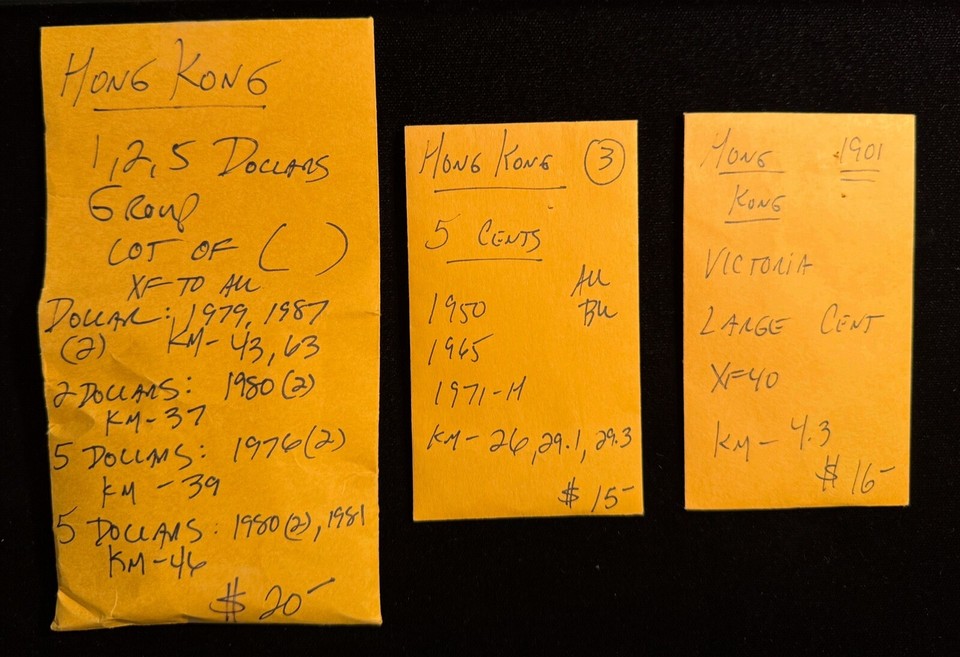 HONG KONG
1, 2, 5 DOLLARS
GROUP
LOT OF ( )
XF TO AU
DOLLAR: 1979, 1987
(2) KM-43, 63
2 DOLLARS: 1980 (2)
KM-37
5 DOLLARS: 1976 (2)
KM-39
5 DOLLARS: 1980 (2), 1981
KM-46
$ 20-
HONG KONG (3)
5 CENTS
AU
1950 BU
1965
1971-H
KM-26, 29.1, 29.3
$ 15-
HONG 1901
KONG
VICTORIA
LARGE CENT
XF40
KM-4.3
$ 16-